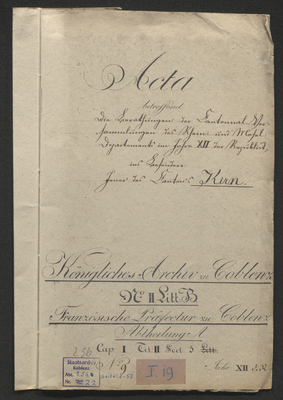 Acta
betreffend
die Berathungen der Cantonnal-Ver-
sammlungen des Rhein und Mosel
Departements im Jahre XII der Republick,
ins besondere
jener des Cantons Kirn.
Königliches Archiv zu Coblenz
No II Litt B
Französische Präfectur zu Coblenz
Abtheilung A
Cap I Tit II Sect 5 Litt
No 9
I 19
XII
Staatsarchiv
Koblenz
Abt.
Nr.